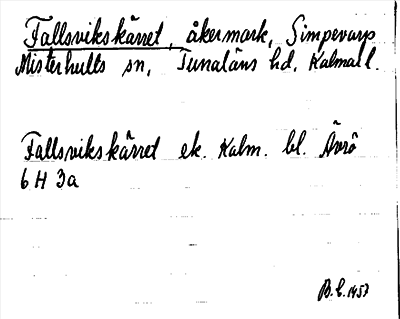 Fallsvikskärret, åkermark, Simpevarp
Misterhults sn, Tunaläns hd, Kalmar l.
Fallsvikskärret ek. Kalm. bl. Ävrö
6 H 3a
B.E. 1953